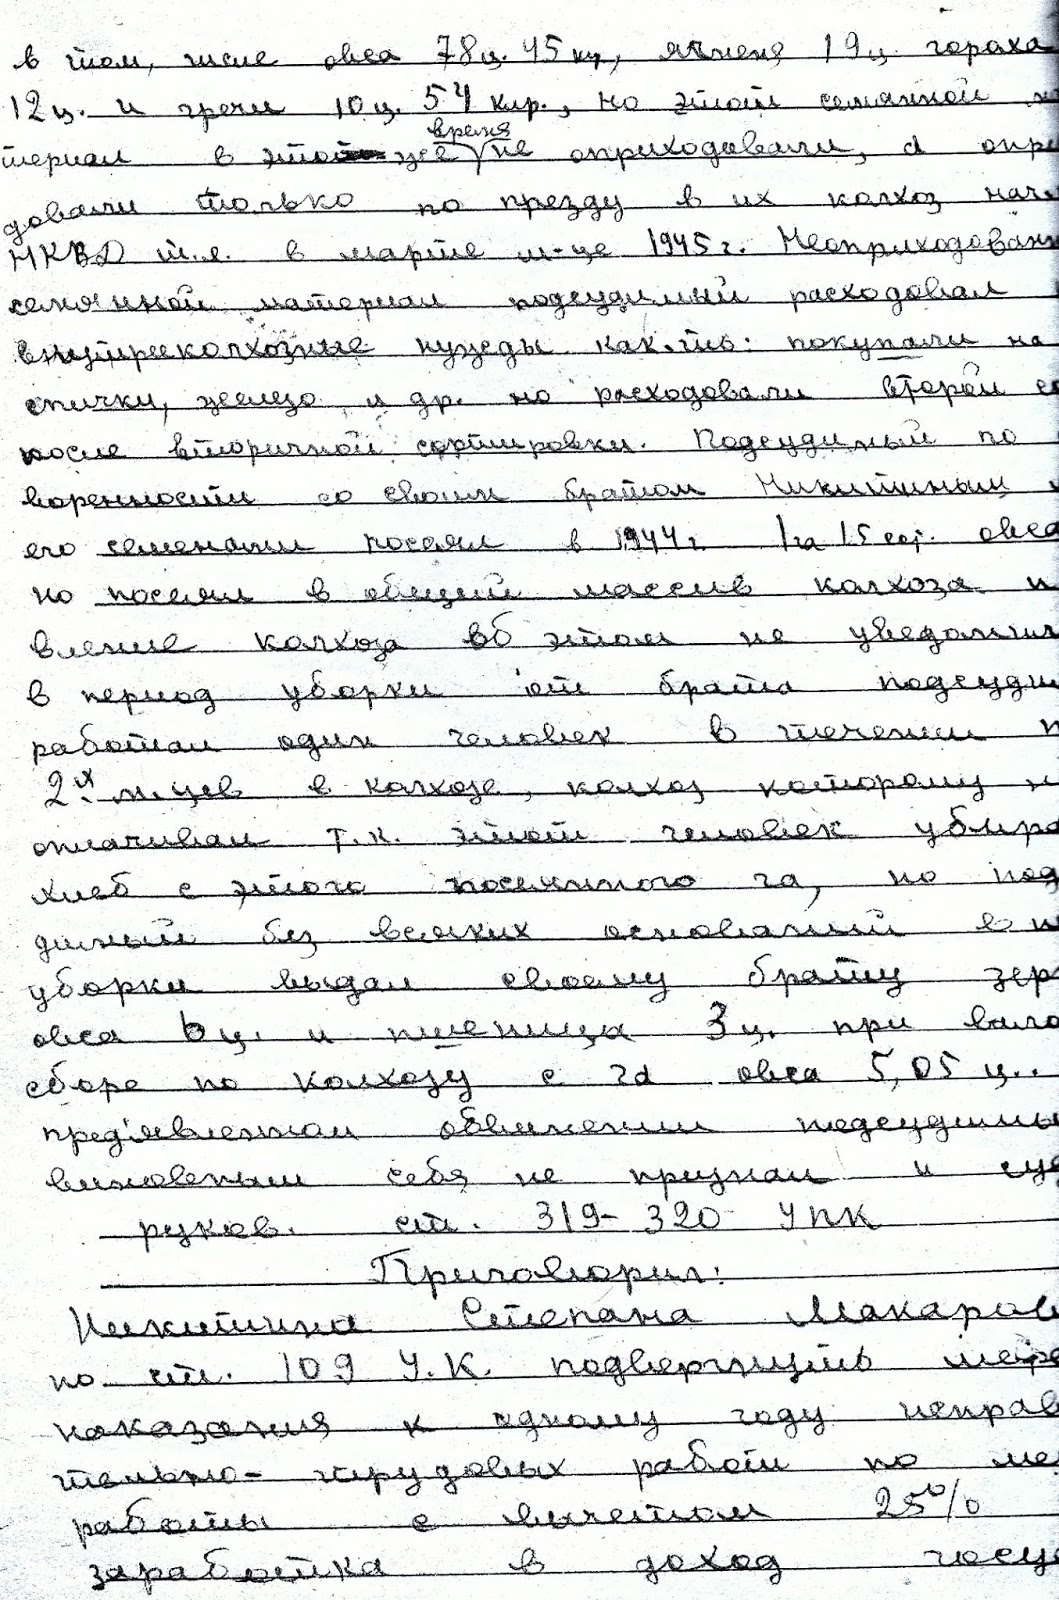 в том, числе овса 78 ц. 45 кц, ячменя 19 ц. гороха
12 ц. и гречи 10 ц. 54 клр., но этот семянной
время
териал в это же не оприходовали, а опри
довали только по презду в их колхоз нач
НКВД т.е. в марте м-це 1945 г. Неоприходован
семянной материал подсудимый расходовал
внутреколхозные нузеды как-то: покупали на
спички, железо и др. но расходовали второй со
после вторичной сортировки. Подсудимый по
воренности со своим братом Никитиным
его семенами посеял в 1944 г. 1 га 15 сот. овса
но посеял в общей массив колхоза п
вление колхоза об этом не уведомил
в период уборки от брата подсуди
работал один человек в течении п
2х м-цев в колхозе, колхоз которому н
оплачивал т.к. этот человек убира
хлеб с этого посеянного га, но под
димый без всяких оснований в п
уборки выдал своему брату зер
овса 6 ц. и пшеницы 3 ц. при вало
сборе по колхозу с га овса 5,05 ц..
пред'явленном обвинении подсудимы
виновеным себя не признал и суд
руков. ст. 319-320 УПК
Приговорил:
Никитина Степана Макаров
по ст. 109 У.К. подвергнуть мере
наказания к одному году исправ
тельно-трудовых работ по ме
работы с вычетом 25%
заработка в доход госу